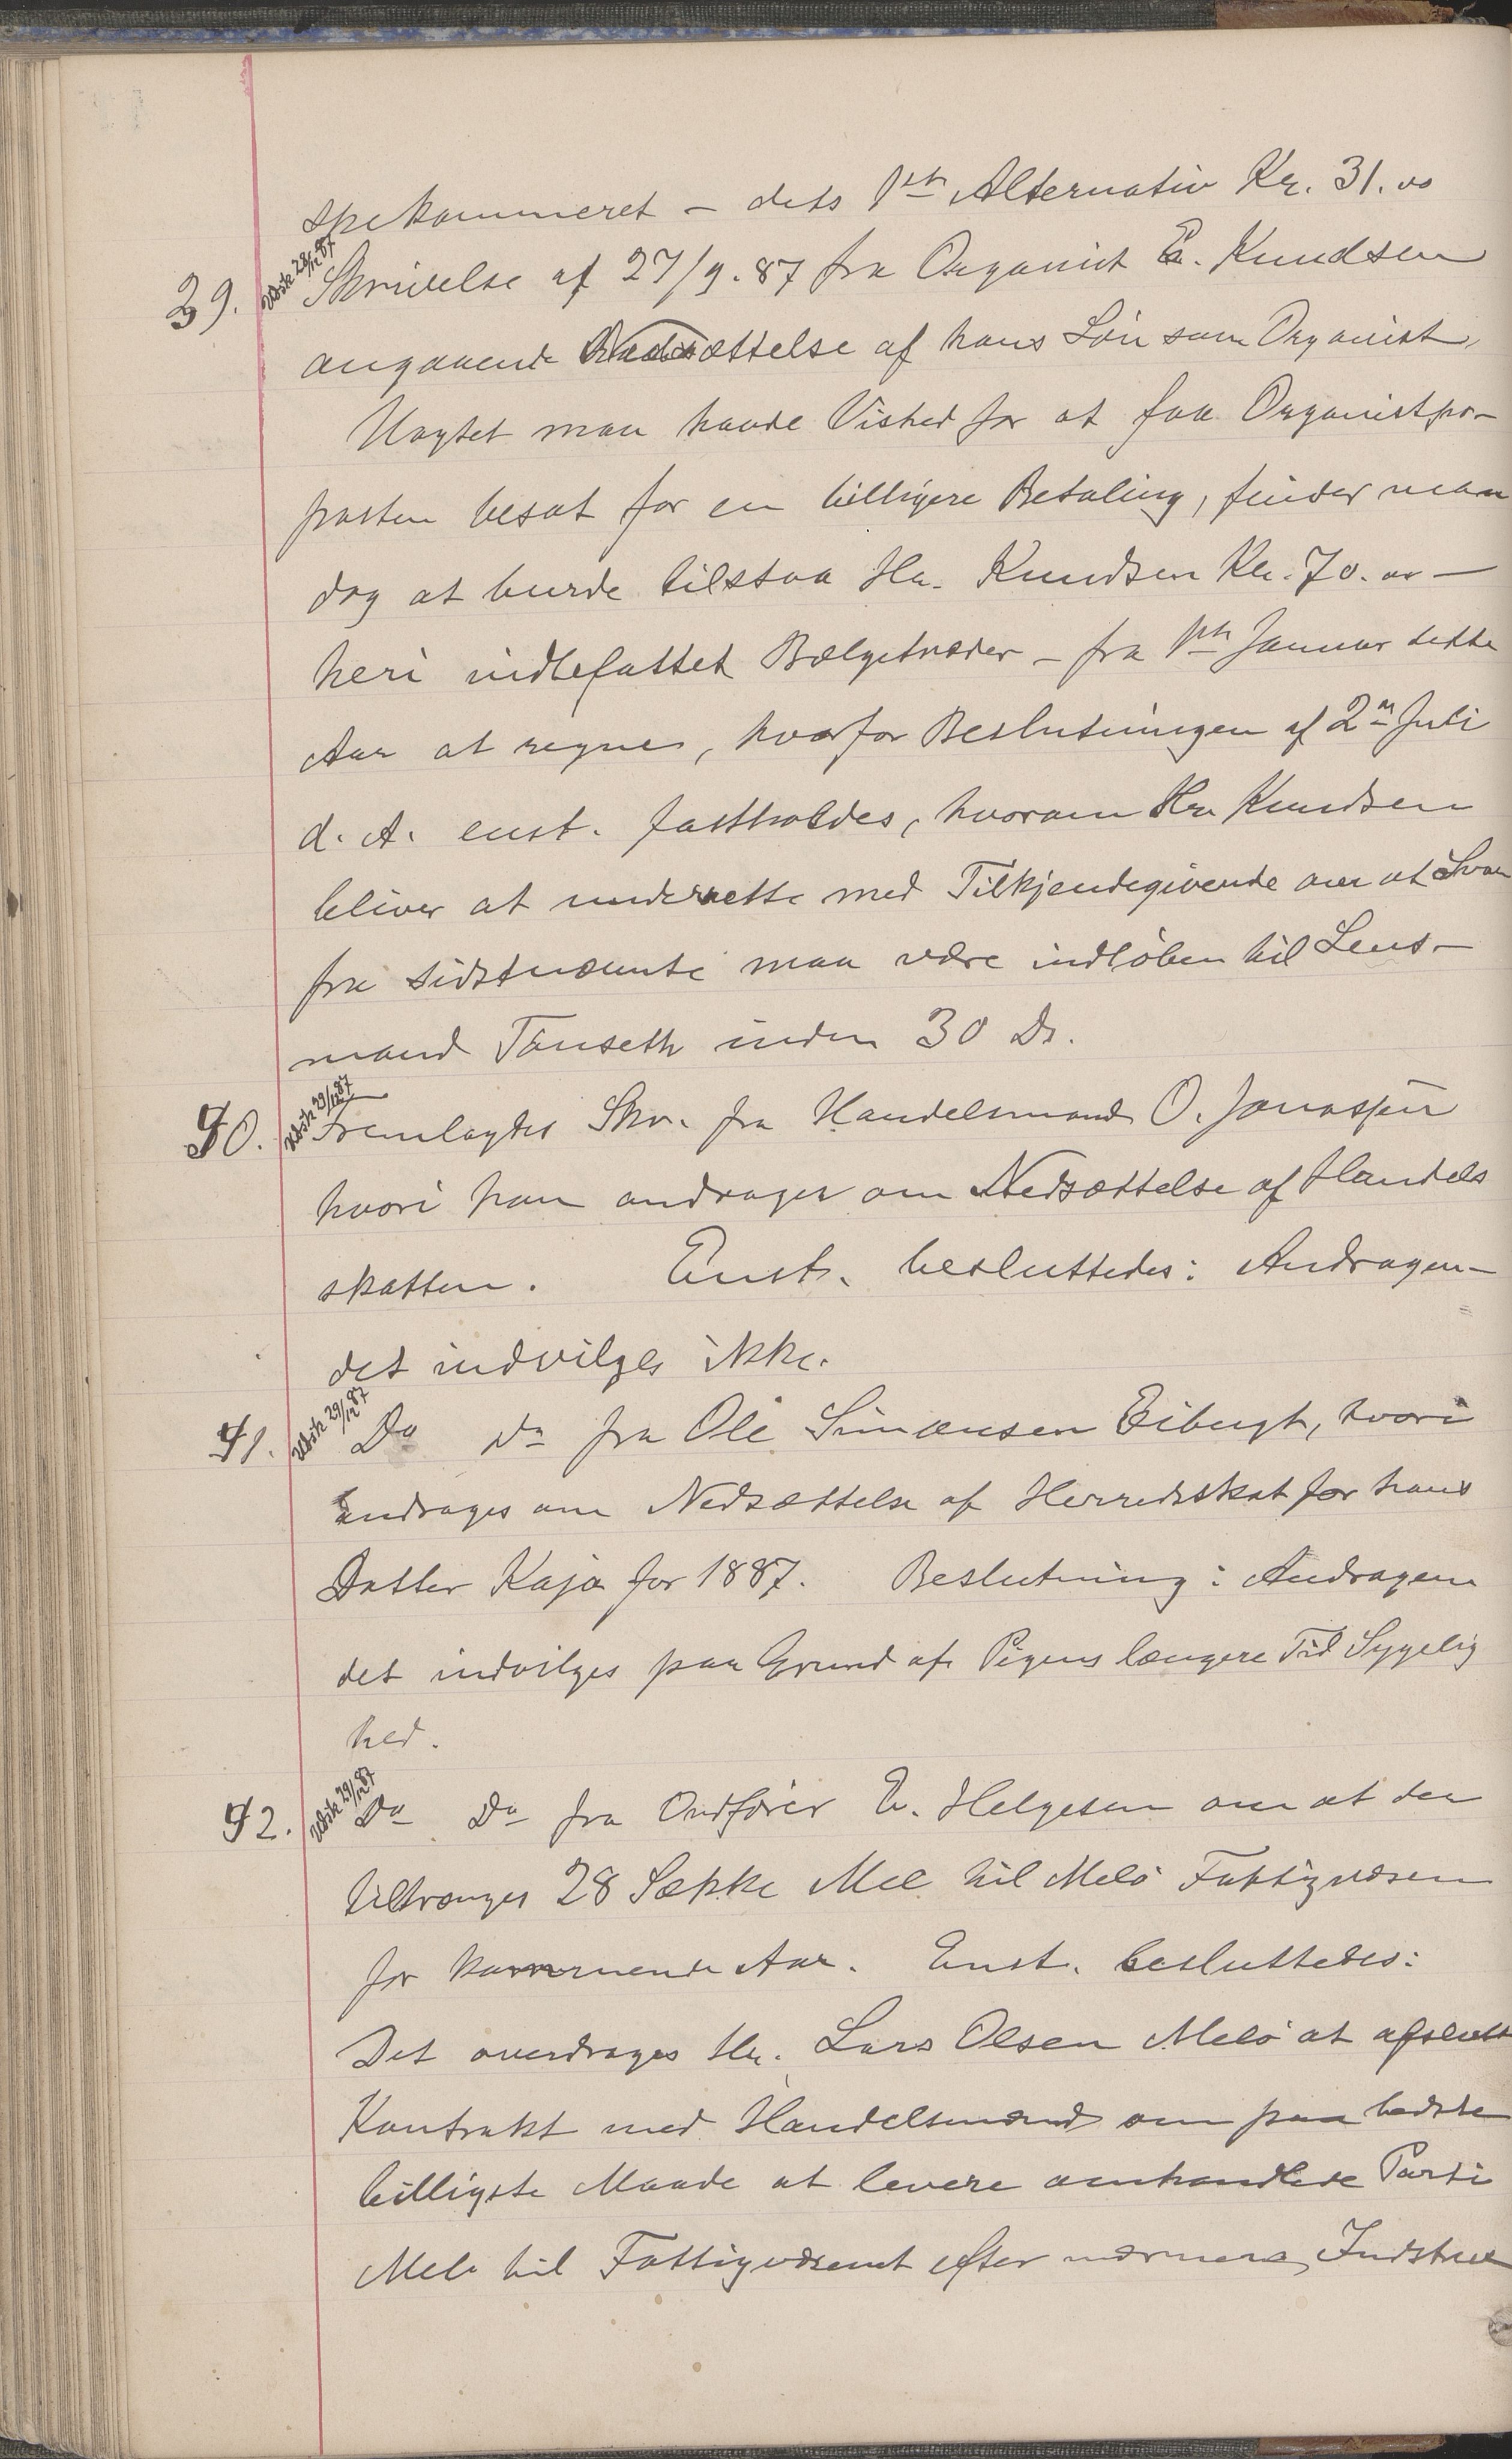 spekammeret – dets 1ste Alternativ Kr. 31.00
39. Udsk 29/12 87 Skrivelse af 27/9. 87 fra Organist E. Knudsen
angaaende Nedsættelse af hans Løn som Organist,
Uagtet man havde Vished for at faa Organistpo-
posten besat for en billigere Betaling, finder man
dog at burde tilstaa Hr. Knudsen Kr. 70.00 –
heri indbefattet Bælgetræder – fra 1ste Januar dette
Aar at regne, hvorfor Beslutningen af 2n Juli
d. A. enst. fastholdes, hvorom Hr. Knudsen
bliver at underrette med Tilkjendegivende om at Svar
fra sidstnævnte maa være indløben til Lens-
mand Tønseth inden 30 Ds.
40. Udsk 29/12 87 Fremlagdes Skr. fra Handelsmand O. Jonassen
hvori han andrager om Nedsættelse af Handels
skatten. Enst. besluttedes: Andragen-
det indvilges ikke.
41. Udsk 29/12 87 Do Do fra Ole Simonsen Eibugt, hvori
andrages om Nedsættelse af Herredsskat for hans
Datter Kaja for 1887. Beslutning: Andragen
det indvilges paa Grund af Pigens længere Tid Sygelig
hed.
42. Udsk 29/12 87 Do Do fra Ordfører E. Helgesen om at der
tiltrænges 28 Sække Mel til Melø Fattigvæsen
for kommende Aar. Enst. besluttedes:
Det overdrages Hr. Lars Olsen Melø at afslutte
Kontrakt med Handelsmænd om paa bedste
billigste Maade at levere omhandlede Parti
Mel til Fattigvæsenet efter nærmere Instrux